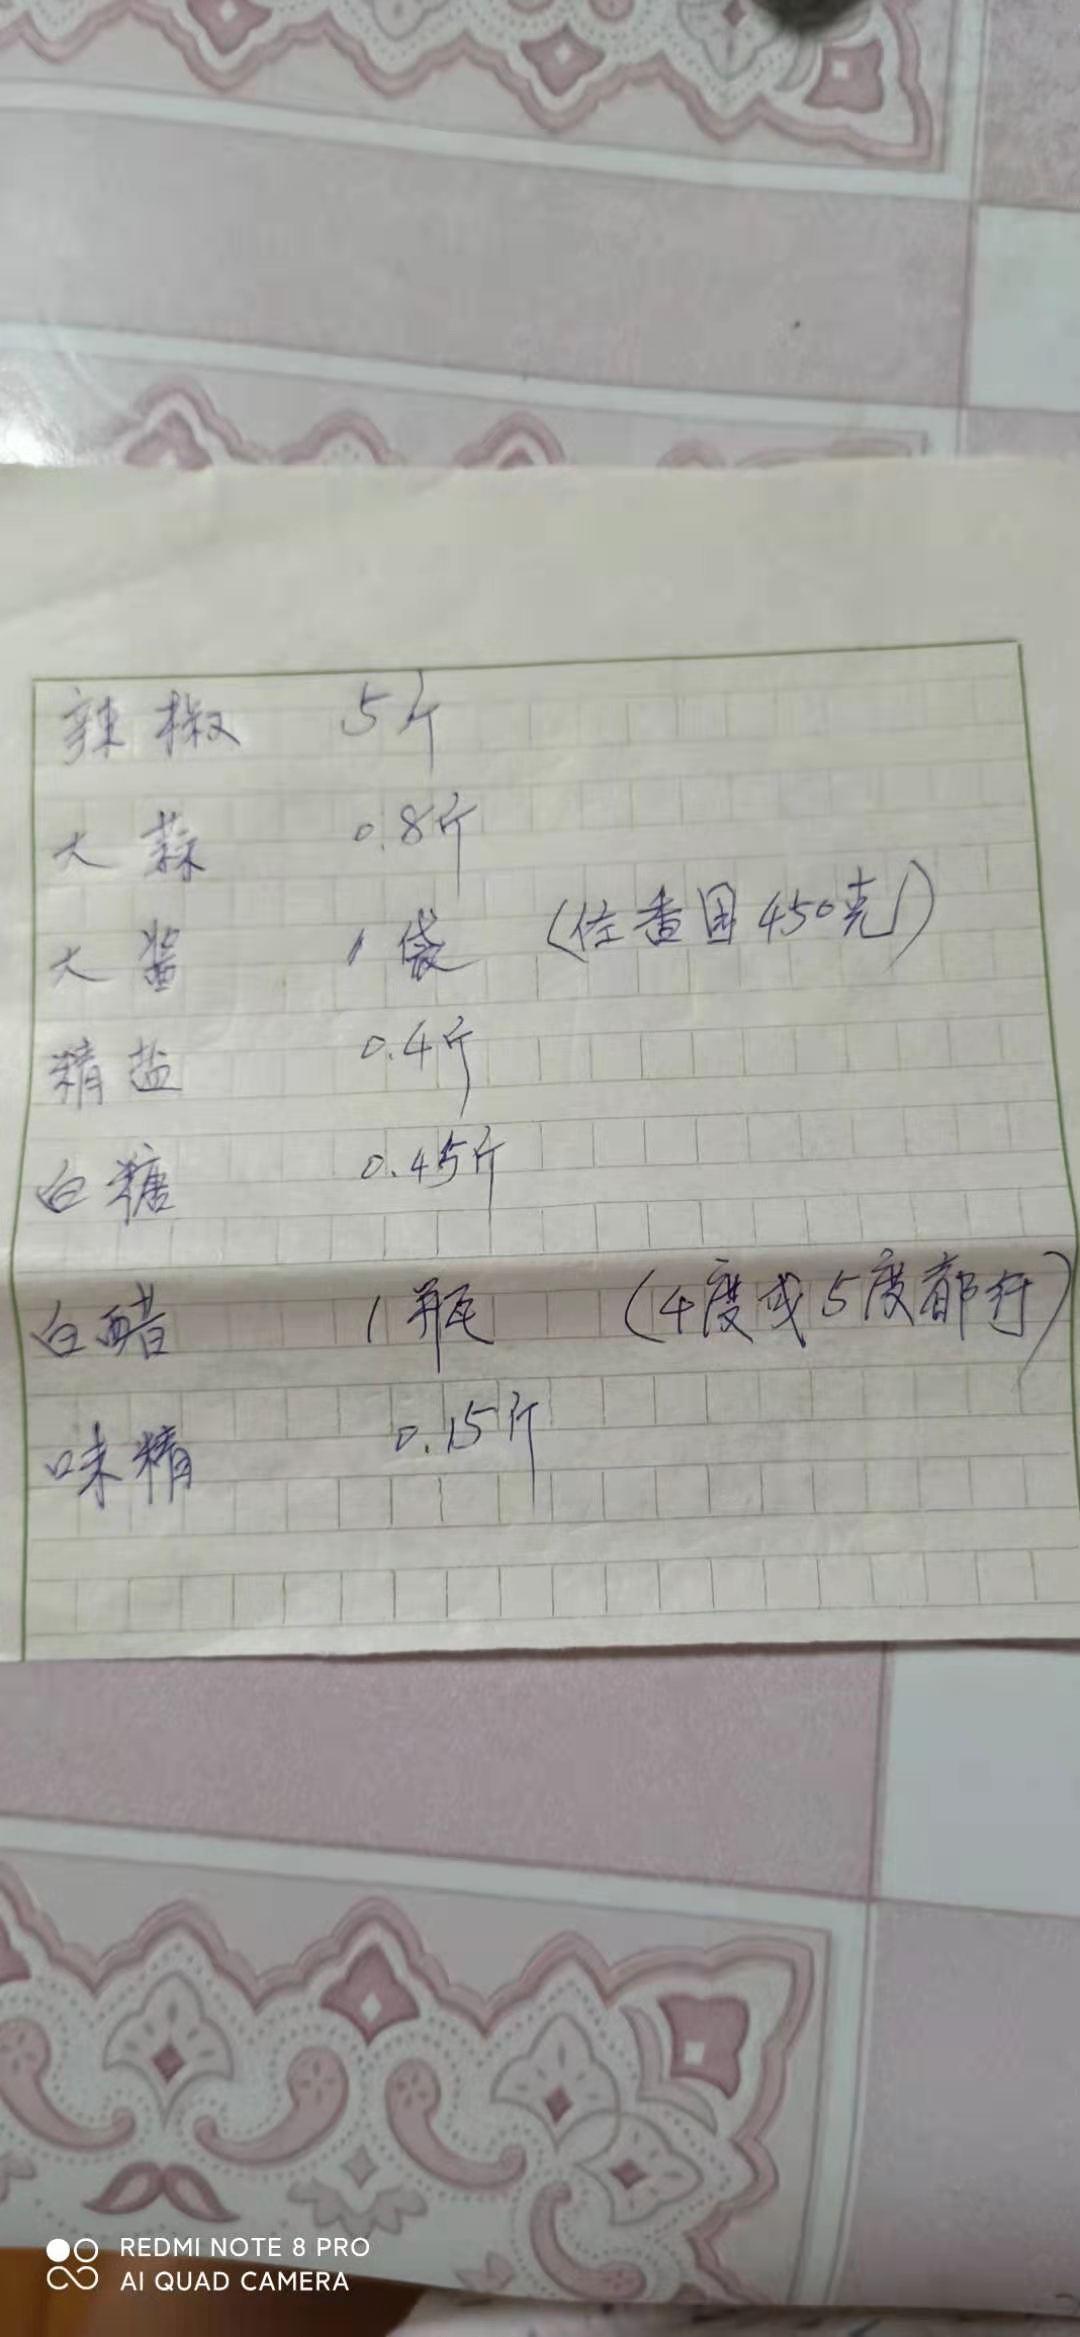 辣椒 5斤
大蒜 0.8斤
大酱 1袋 (佐香园450克)
精盐 0.4斤
白糖 0.45斤
白醋 1瓶 (4度或5度都行)
味精 0.15斤
REDMI NOTE 8 PRO
AI QUAD CAMERA